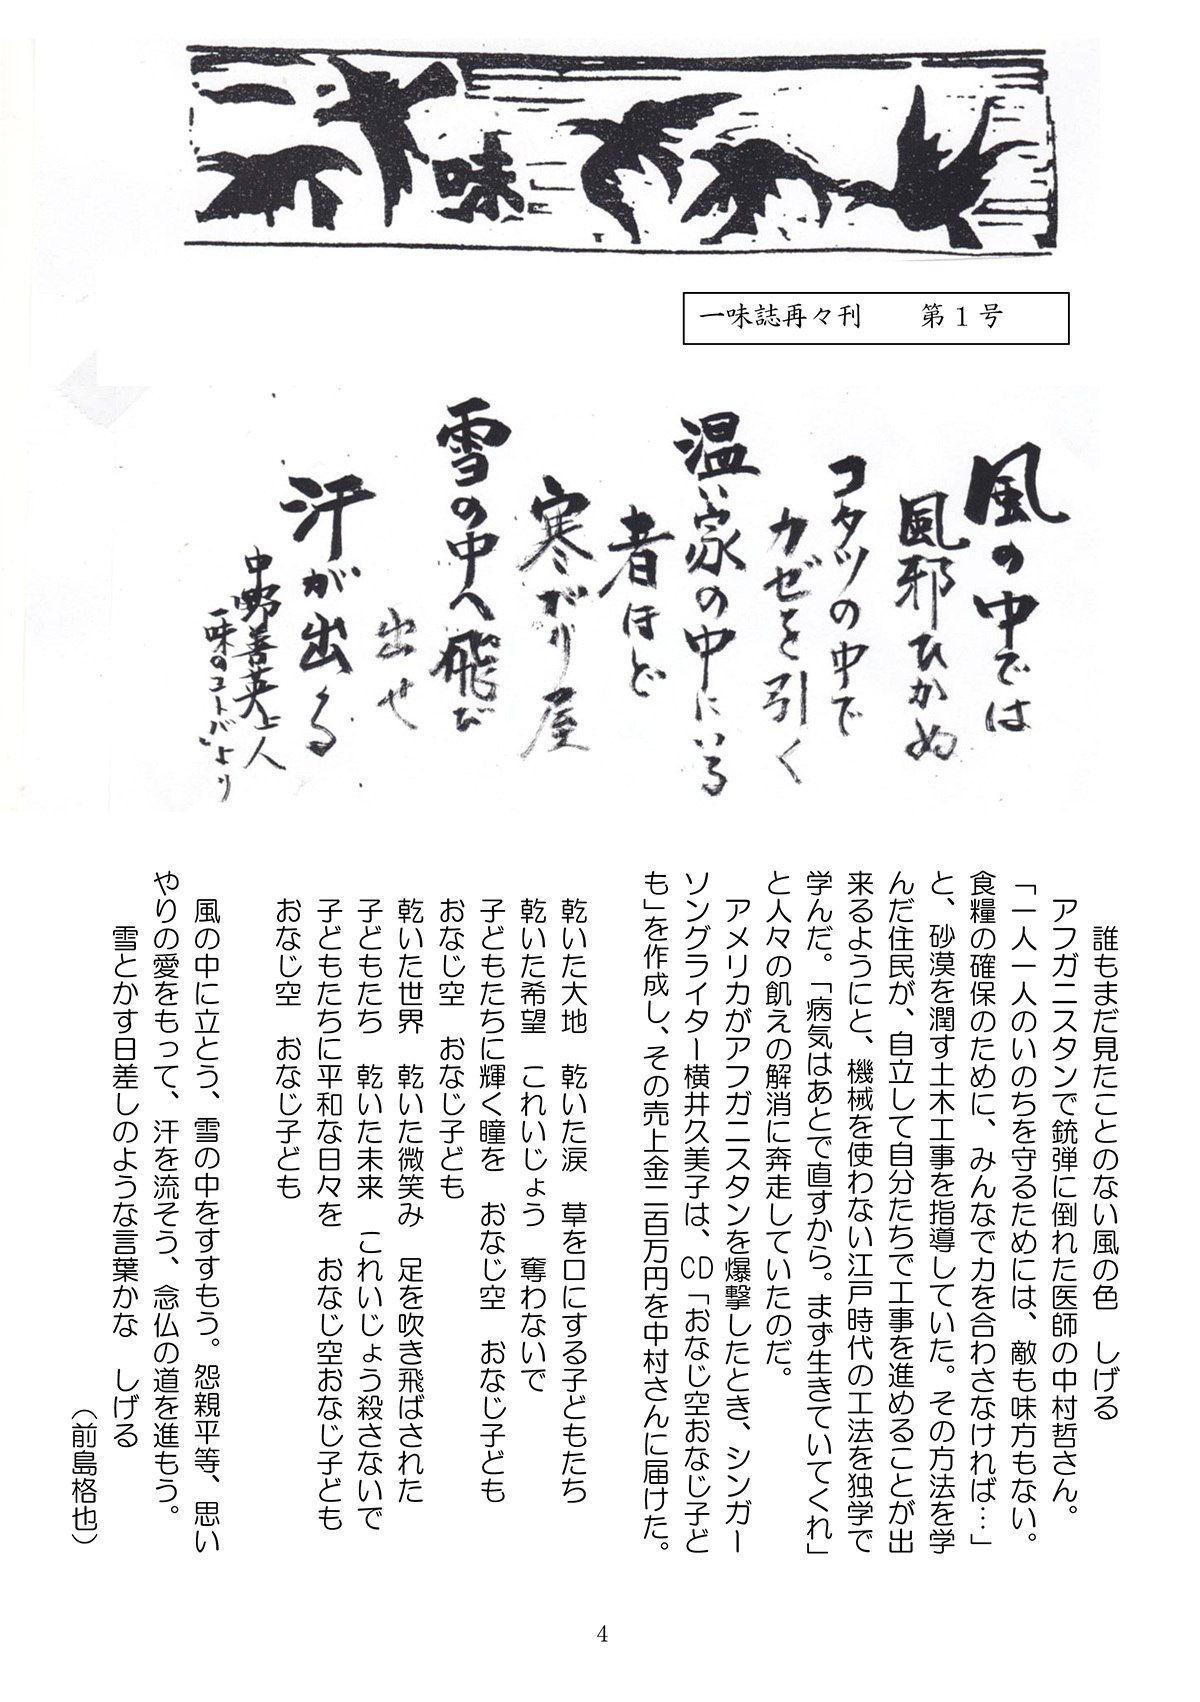 一味
一味誌再々刊　第1号
風の中では
風邪ひかぬ
コタツの中で
カゼを引く
温い家の中にいる
者ほど
寒がり屋
雪の中へ飛び
出せ
汗が出る
中野善英上人
一味のコトバより
誰もまだ見たことのない風の色　しげる
アフガニスタンで銃弾に倒れた医師の中村哲さん。
「一人一人のいのちを守るためには、敵も味方もない。
食糧の確保のために、みんなで力を合わさなければ…」
と、砂漠を潤す土木工事を指導していた。その方法を学
んだ住民が、自立して自分たちで工事を進めることが出
来るようにと、機械を使わない江戸時代の工法を独学で
学んだ。「病気はあとで直すから。まず生きていてくれ」
と人々の飢えの解消に奔走していたのだ。
アメリカがアフガニスタンを爆撃したとき、シンガー
ソングライター横井久美子は、CD「おなじ空おなじ子ど
も」を作成し、その売上金二百万円を中村さんに届けた。
乾いた大地　乾いた涙　草を口にする子どもたち
乾いた希望　これいじょう　奪わないで
子どもたちに輝く瞳を　おなじ空　おなじ子ども
おなじ空　おなじ子ども
乾いた世界　乾いた微笑み　足を吹き飛ばされた
子どもたち　乾いた未来　これいじょう殺さないで
子どもたちに平和な日々を　おなじ空おなじ子ども
おなじ空　おなじ子ども
風の中に立とう、雪の中をすすもう。怨親平等、思い
やりの愛をもって、汗を流そう、念仏の道を進もう。
雪とかす日差しのような言葉かな　しげる
（前島格也）
4